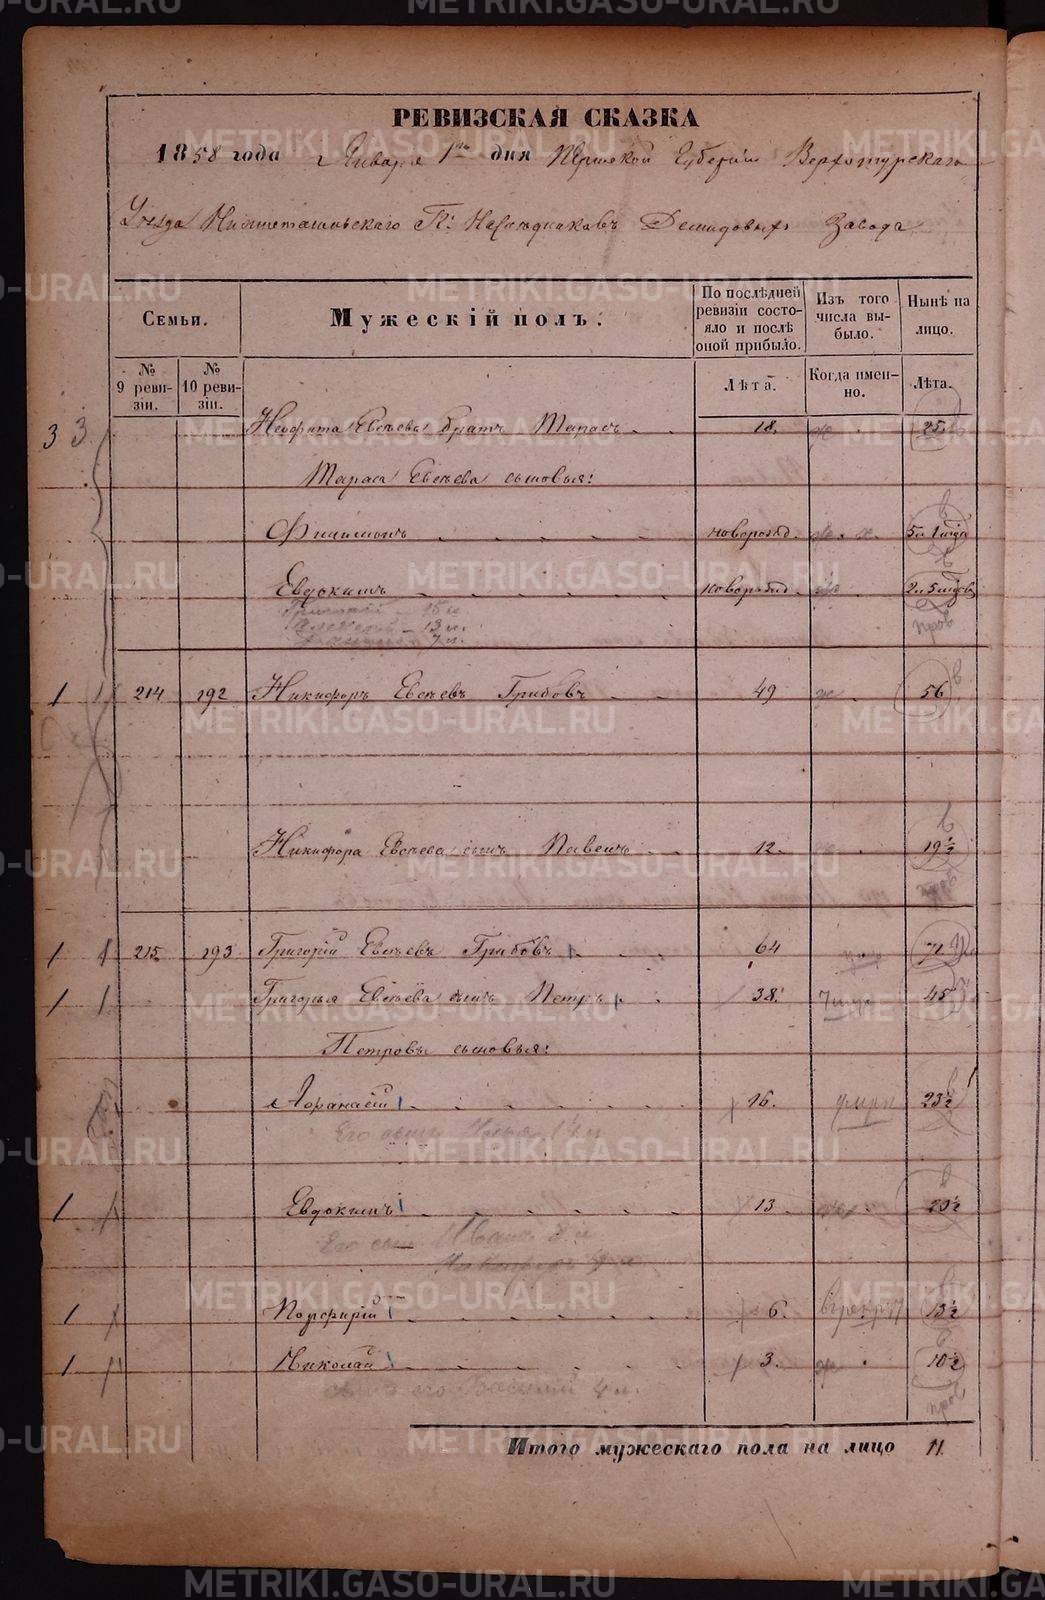 РЕВИЗСКАЯ СКАЗКА
1858 года Января 1го дня Пермской Губернiи Верхотурскаго
Уѣзда Нижнетагильскаго Гг. Наслѣдниковъ Демидовыхъ Завода
Семьи.
Мужескій полъ.
По послѣдней ревизіи состояло и послѣ оной прибыло.
Изъ того числа выбыло.
Нынѣ на лицо.
№ 9 ревизіи.
№ 10 ревизіи.
Лѣта.
Когда именно.
Лѣта.
3 3 Неофита Евсѣева братъ Тарасъ 18. 25
Тараса Евсѣева сыновья:
Филимонъ новорожд. 5
Евдокимъ новорожд. 2
15
13
7 л.
1 1 214 192 Никифоръ Евсѣевъ Грибовъ 49 56
Никифора Евсѣева сынъ Павелъ 12. 19½
1 1 215 193 Григорій Евсѣевъ Грибовъ 64 71
1 1 Григорья Евсѣева сынъ Петръ 38. 45
Петровы сыновья:
Афанасій 16. умер 23½
Его сынъ Илья
1 Евдокимъ 13 20½
Его сын Иванъ 8 л
1 Порфирій 6. 13½
1 Николай 3. 10½
сынъ его Василій 4 л.
Итого мужескаго пола на лицо 11.
METRIKI.GASO-URAL.RU